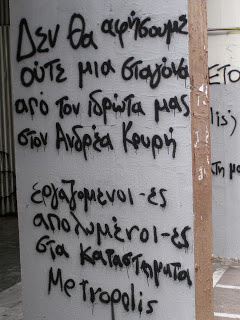 Δεν θα αφήσουμε
ούτε μια σταγόνα
από τον ιδρώτα μας
στον Ανδρέα Κουρή
εργαζόμενοι-ες
απολυμένοι-ες
στα καταστήματα
Metropolis